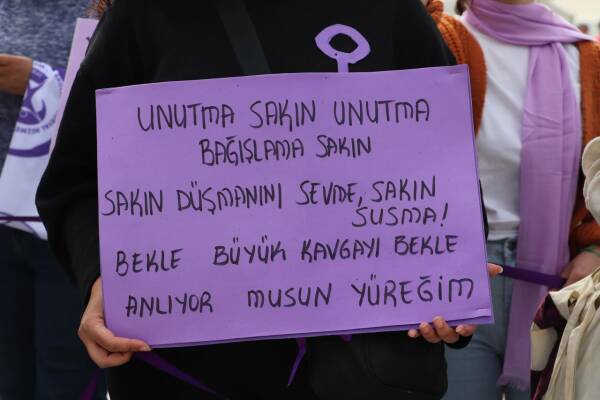 UNUTMA SAKIN UNUTMA
BAĞIŞLAMA SAKIN
SAKIN DÜŞMANINI SEVME, SAKIN
SUSMA!
BEKLE BÜYÜK KAVGAYI BEKLE
ANLIYOR MUSUN YÜREĞİM